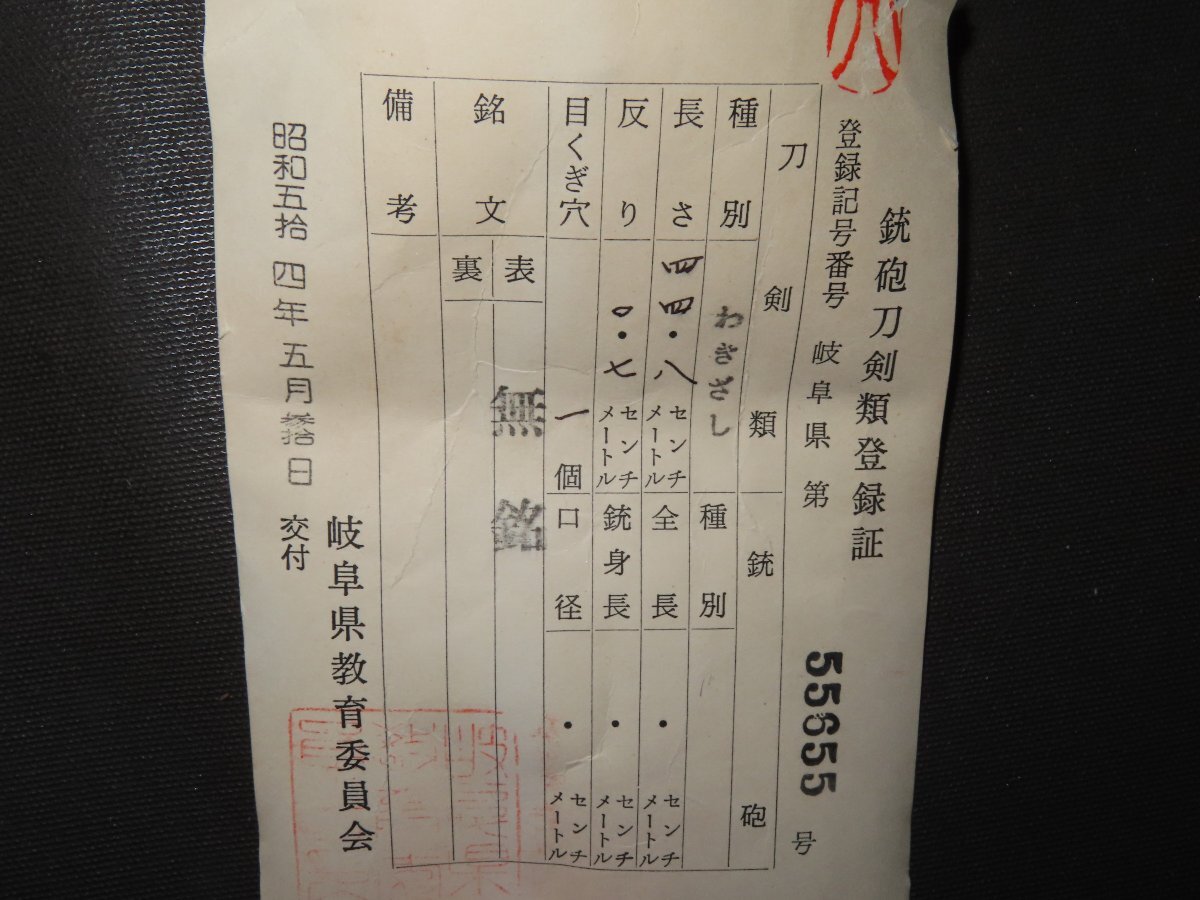 銃砲刀剣類登録証
登録記号番号 岐阜県 第 55655 号
刀剣類 銃砲
種別 わきざし 種別
長さ 四四・八 センチメートル 全長 ・ センチメートル
反り 〇・七 センチメートル 銃身長 ・ センチメートル
目くぎ穴 一個 口径 ・ センチメートル
銘文 表 無銘
裏
備考
昭和五拾四年五月拾日 交付
岐阜県教育委員会